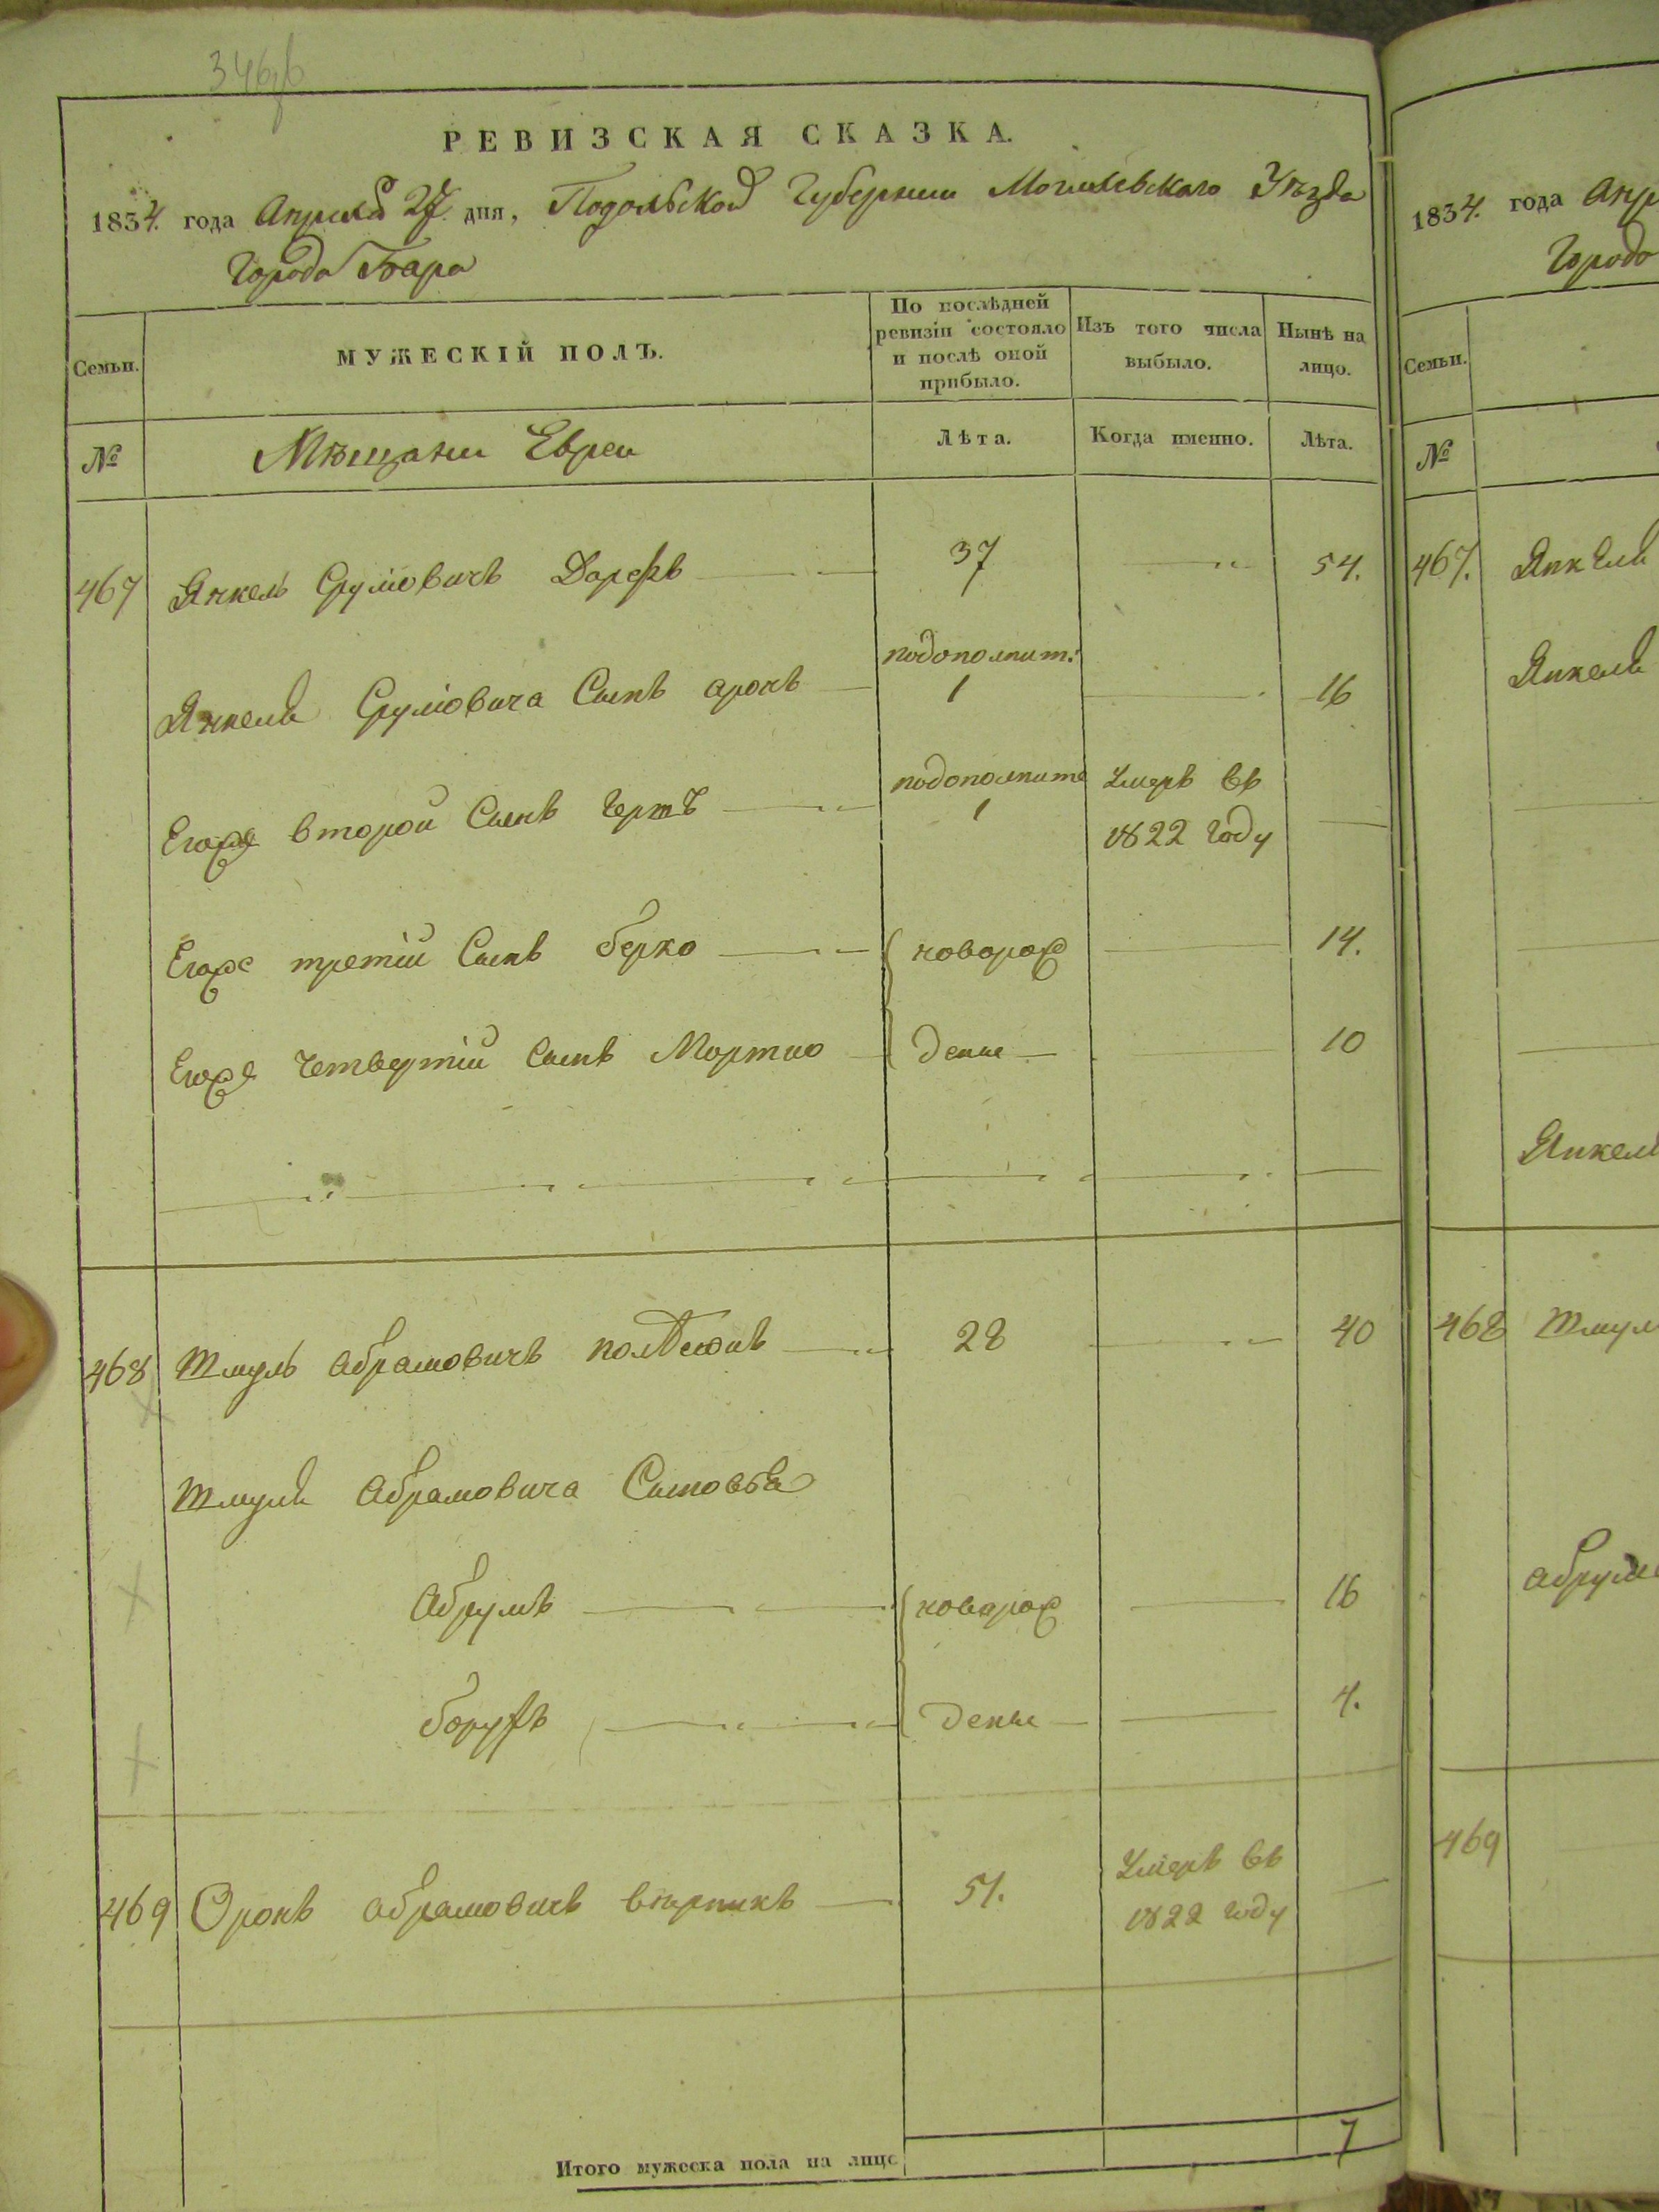 346об
РЕВИЗСКАЯ СКАЗКА.
1834. года Апреля 27. дня, Подольской Губернии Могилевского Уѣзда
Города Бара
Семьи.
МУЖЕСКІЙ ПОЛЪ.
По послѣдней ревизіи состояло и послѣ оной прибыло.
Изъ того числа выбыло.
Нынѣ на лицо.
№
Мѣщани Евреи
Лѣта.
Когда именно.
Лѣта.
467 Янкель Срулiовичъ 37 54.
Янкеля Срулiовича Сынъ аронъ подополнит: 1 16
Егоже второй Сынъ герш подополните 1 Умеръ въ 1822 году
Егоже третiй Сынъ берко новорож 14.
Егоже четвертiй Сынъ Мортко деные 10
468 Шмуль абрамовичъ 28 40
Шмуля Абрамовича Сыновья
Абрумъ новорож 16
борухъ деные 4.
469 Оронъ абрамовичъ 51. Умеръ въ 1822 году
Итого мужеска пола на лице 7
1834. года Апр
Города
Семьи.
№
467. Янкеля
Янкеля
Янкел
468 Шмул
абрум
469